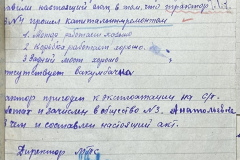 настоящий акт в том, что трактор
прошел капитал
1. Мотор работает хорошо
2. Коробка работает хорошо.
3. Задний мост хорошо
пригоден к эксплоатации на с/г.
и зачислен в общество №3. Анатольевич
и составлен настоящий акт.
Директор МТС